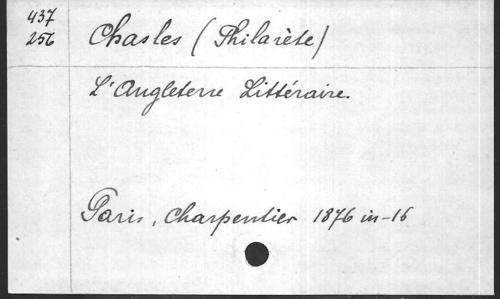 437
256
Chasles (Philarète)
L'Angleterre Littéraire.
Paris, Charpentier 1876 in-16